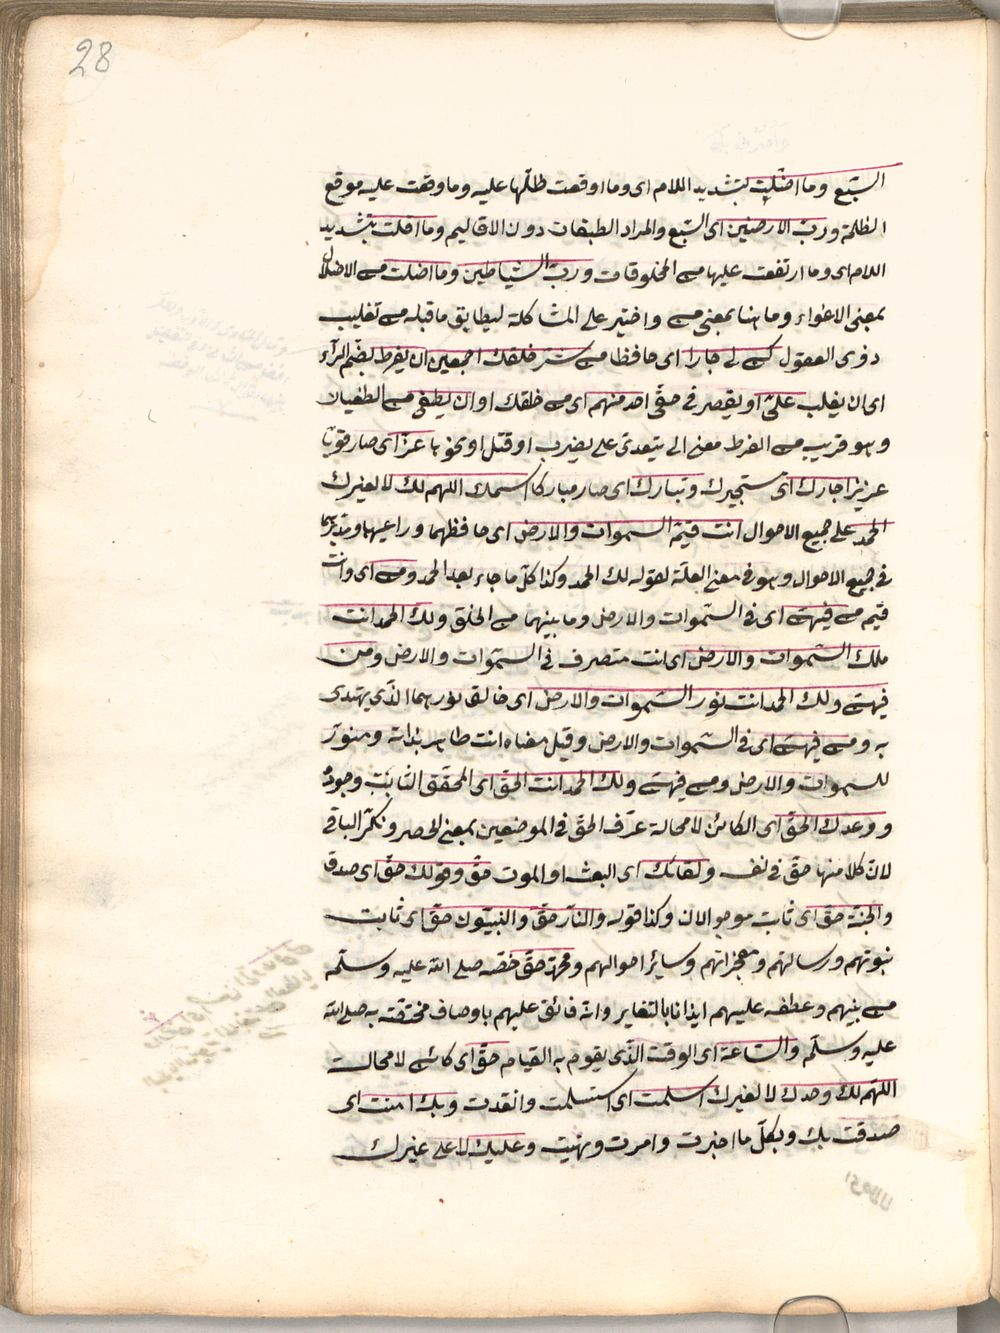 28
السّبع وما اظلّت بتشديد اللام اى وما اوقعت ظلّها عليه وما وقعت عليه موقع
الظلمة وربّ الارضين اى السّبع والمراد الطبقات دون الاقاليم وما اقلّت بتشديد
اللام اى وما ارتفعت عليها من المخلوقات وربّ الشياطين وما اضلت من الاضلال
بمعنى الاغواء وما هنا بمعنى من واختير على المشاكلة ليطابق ما قبله من تغليب
ذوى العقول كن لى جارا اى حافظا من شرّ خلقك اجمعين ان يفرط بضم الرآء
اى ان يغلب علىّ او يقصر فى حقّى احد منهم اى من خلقك او ان يطغى من الطغيان
وهو قريب من الفرط معنى الى يتعدى على بضرب او قتل او نحوها عزّ اى صار قويّا
عزيزا جارك اى مستجيرك وتبارك اى صار مباركا اسمك اللهم لك لا لغيرك
الحمد على جميع الاحوال انت قيّم السموات والارض اى حافظهما وراعيهما ومدبّرهما
فى جميع الاحوال وهو فى معنى العلّة لقوله لك الحمد وكذا كلّ ما جاء بعد الحمد ومن اى وانت
قيّم من فيهنّ اى فى السّموات والارض وما بينهما من الخلق ولك الحمد انت
ملك السّموات والارض اى انت متصرف فى السّموات والارض ومن
فيهنّ ولك الحمد انت نور السّموات والارض اى خالق نورهما الّذى يهتدى
به ومن فيهنّ اى فى السّموات والارض وقيل معناه انت طاهر بذاته ومنوّر
للسموات والارض ومن فيهنّ ولك الحمد انت الحقّ اى المحقّق الثابت وجوده
ووعدك الحقّ اى الكائن لا محالة عرّف الحقّ فى الموضعين بمعنى الحصر ونكّر الباقى
لانّ كلا منها حقّ فى نفسه ولقائك اى البعث او الموت حقّ وقولك حقّ اى صدق
والجنّة حقّ اى ثابت موجود الان وكذا قوله والنار حقّ والنبيّون حقّ اى ثابت
نبوتهم ورسالتهم ومعجزاتهم وسائر احوالهم ومحمّد حقّ خصّه صلى الله عليه وسلّم
من بينهم وعطفه عليهم ايذانا بالتغاير وانّه فائق عليهم باوصاف مختصّة به صلى الله
عليه وسلّم والسّاعة اى الوقت الّذى يقوم به القيام حقّ اى كائن لا محالة
اللّهم لك وحدك لا لغيرك اسلمت اى استسلمت وانقدت وبك امنت اى
صدقت بك وبكلّ ما اخبرت وامرت ونهيت وعليك لا على غيرك